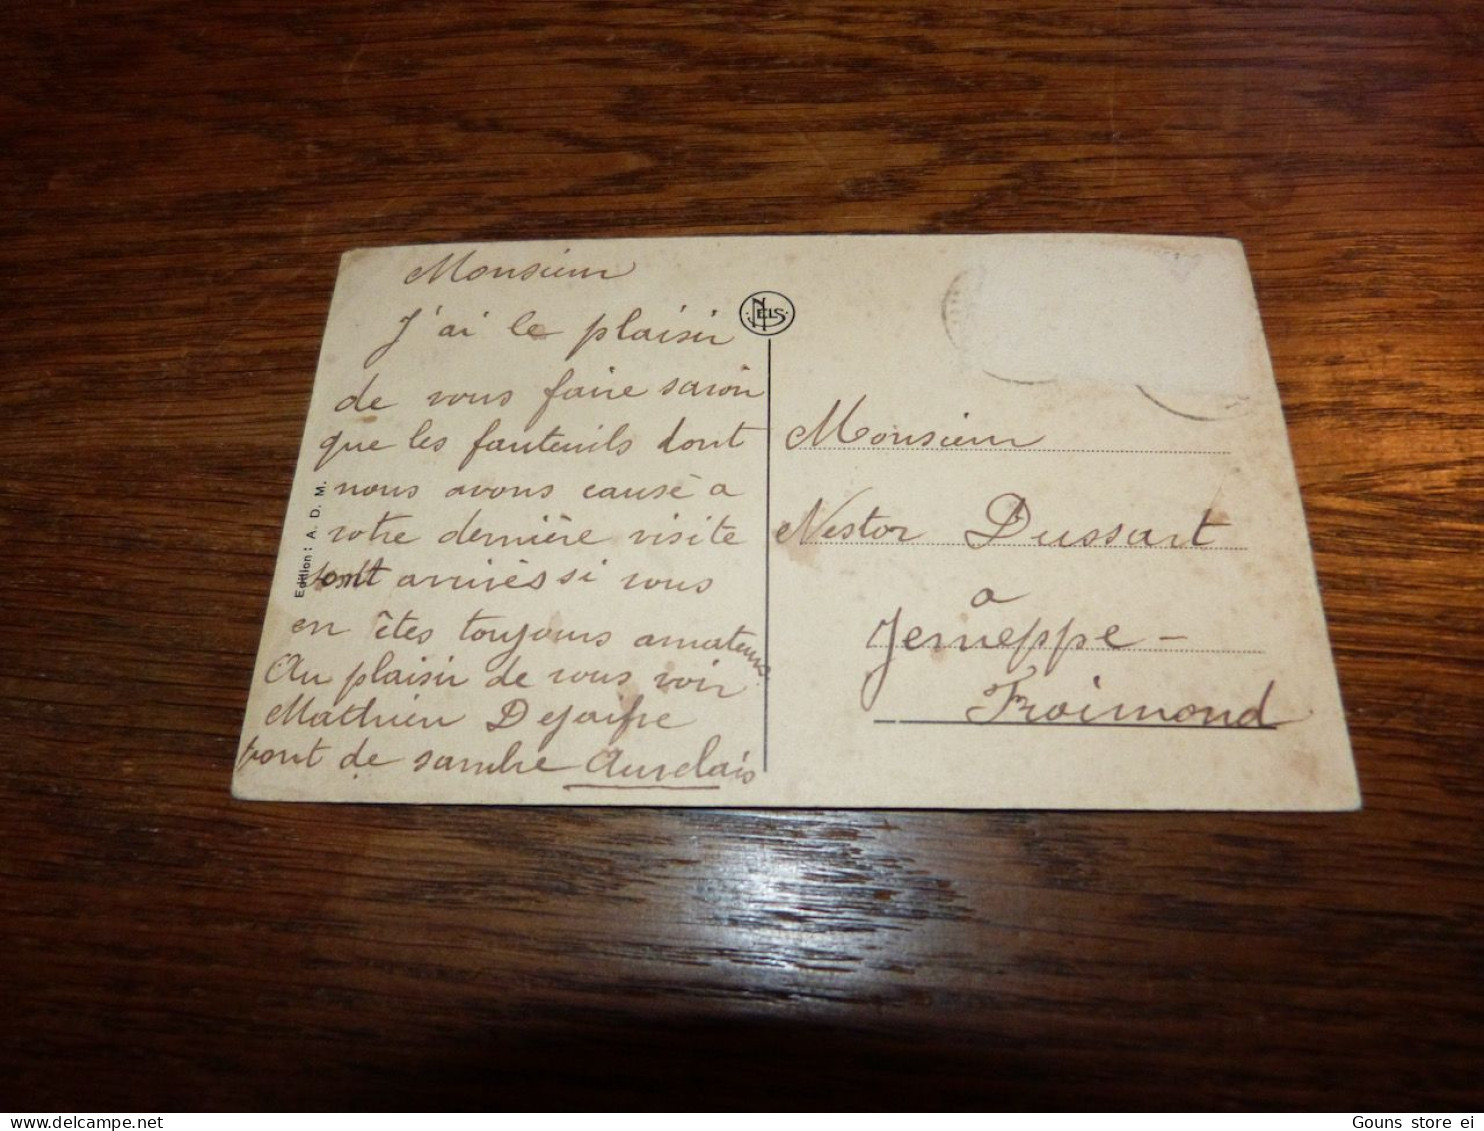 Monsieur
J'ai le plaisir
de vous faire savoir
que les fauteuils dont
nous avons causé a
votre dernière visite
sont arrivés si vous
en êtes toujours amateurs.
Au plaisir de vous voir
Mathieu Dejaifve
pont de sambre Auvelais
Edition: A. D. M.
NELS
Monsieur
Nestor Dussart
a
Jemeppe-
Froimond
Gouns store ei